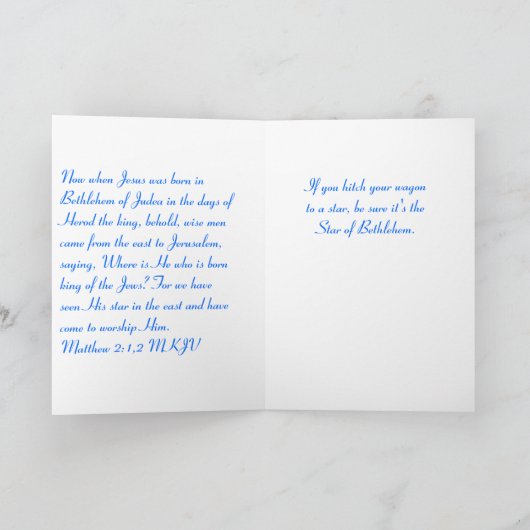 Now when Jesus was born in
Bethlehem of Judea in the days of
Herod the king, behold, wise men
came from the east to Jerusalem,
saying, Where is He who is born
king of the Jews? For we have
seen His star in the east and have
come to worship Him.
Matthew 2:1,2 MKJV
If you hitch your wagon
to a star, be sure it's the
Star of Bethlehem.